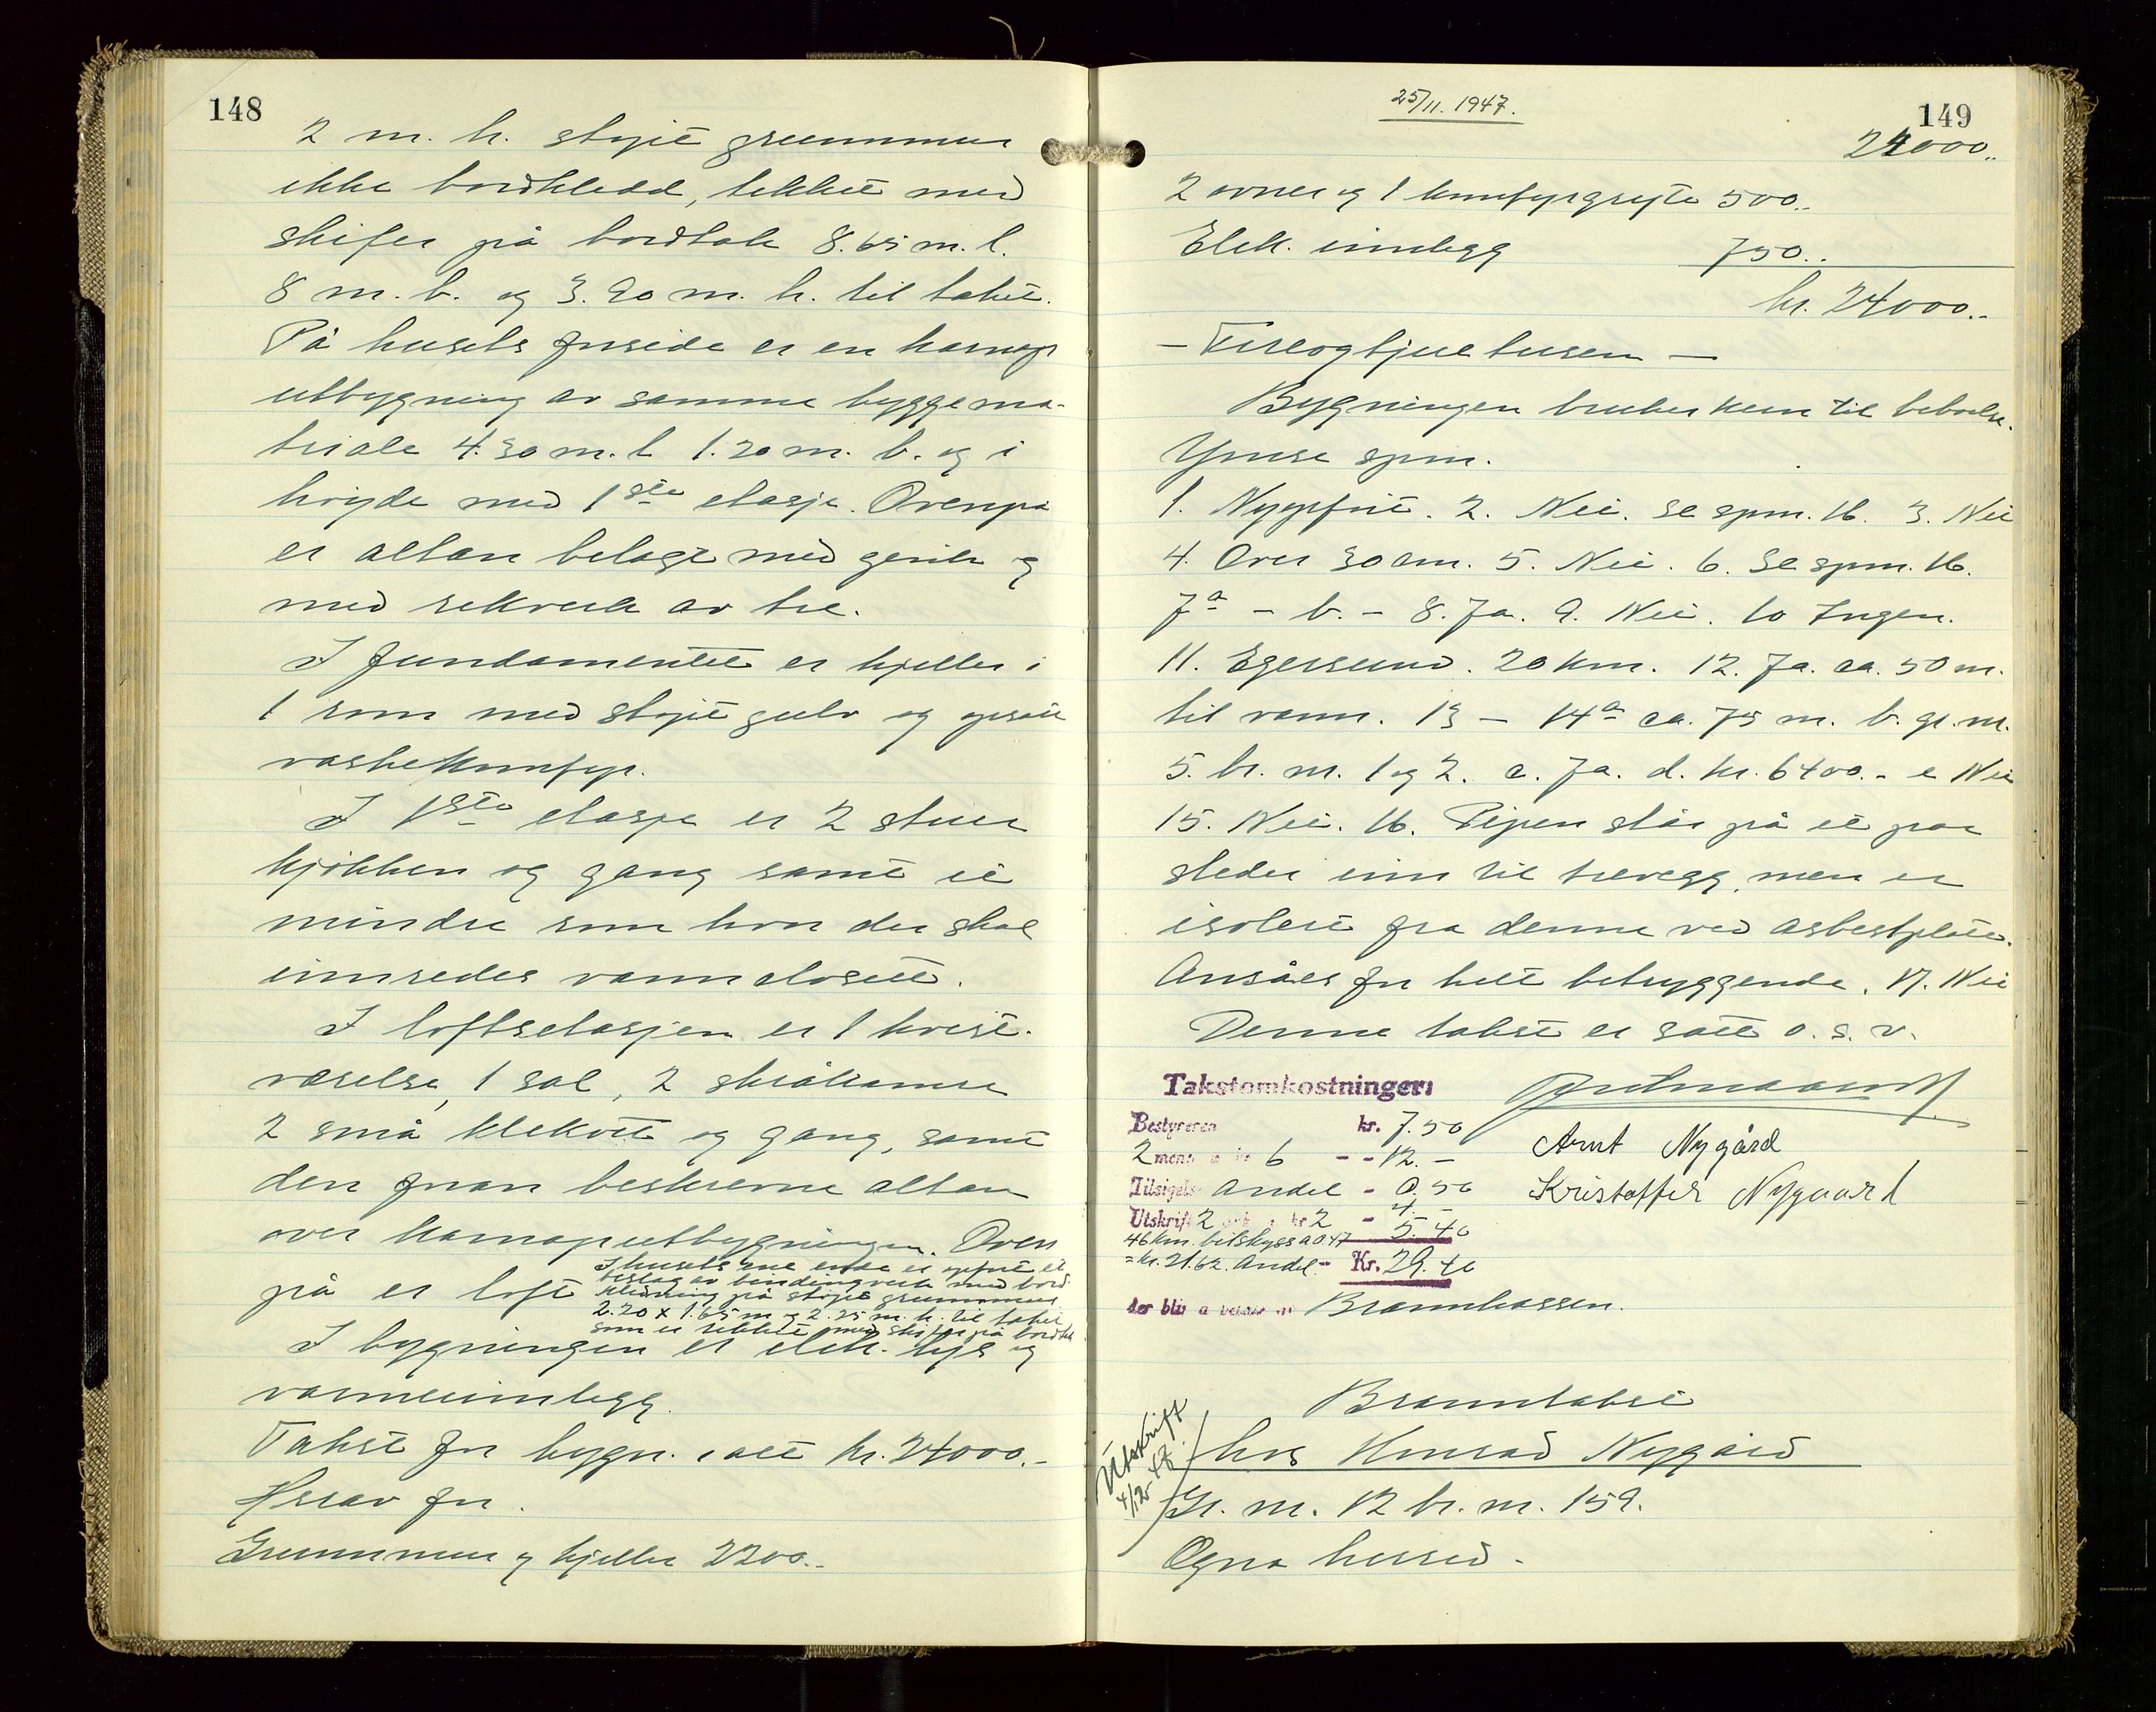 148
2 m. h. støpt grunnmur
ikke bordkledd, tekket med
skifer på bordtak 8.65 m. l.
8 m. b. og 3.90 m. h. til taket.
På husets forside er en karnap
utbygning av samme byggema-
triale 4.30 m. l 1.20 m. b. og i
høyde med 1ste etasje. Ovenpå
er altan belagt med  og
med rekverk av tre.
I fundamentet er kjeller i
1 rom med støpt gulv og opsatt
vaskekomfyr.
I 1ste etasje er 2 stuer
kjøkken og gang samt et
mindre rom hvor der skal
innredes vannclosett.
I loftsetasjen er 1 kvist-
værelse, 1 sal, 2 skråkamre
2 små klekott og gang, samt
den foran beskrevne altan
over karnaputbygningen. Oven
på er loft I husets ene ende er opført et
beslag av bindingverk med bord-
kledning på støpt grunnmur
2.20 x 1.65 m og 2.25 m. h. til taket
som er tekket med skifer på bordtak
I bygningen er elek. lys og
varmeinnlegg.
Takst for bygn. i alt kr. 24000.-
Herav for
Grunnmur og kjeller 2200.-
25/11. 1947.
149
24000..
2 ovner og 1 komfyrgryte 500..
Elek. innlegg 750..
kr. 24000..
- Fireogtjuetusen -
Bygningen brukes kun til beboelse.
Ymse spm.
1. Nyopført. 2. Nei. Se spm. 16. 3. Nei
4. Over 30 cm. 5. Nei. 6. Se spm. 16.
7a - b. - 8. Ja. 9. Nei. 10 Ingen.
11. Egersund. 20 km. 12. Ja. ca. 50 m.
til vann. 13 - 14a ca. 75 m. b. gr. nr.
5. br. nr. 1 og 2. c. Ja. d. kr. 6400.- e Nei
15. Nei. 16. Pipen står på et par
steder inn til trevegg, men er
isolert fra denne ved asbestplate.
Ansåes for helt betryggende. 17. Nei
Denne takst er satt o. s. v.
Takstomkostninger:
Bestyreren kr. 7.50
2 menn a kr 6 - - 12. -
Arnt Nygård
Tilsigelse Andel - 0.50
Kristoffer Nygaard
Utskrift 2 ark a kr 2 - 4. -
46 km. bilskyss a 0.47 5.40
= kr. 21.62. Andel - Kr. 29.40
der blir å betale av Brannkassen.
Utskrift
4/12 47.
Branntakst
hos Konrad Nygård
Gr. nr. 12 br. nr. 159.
Ogna herred.